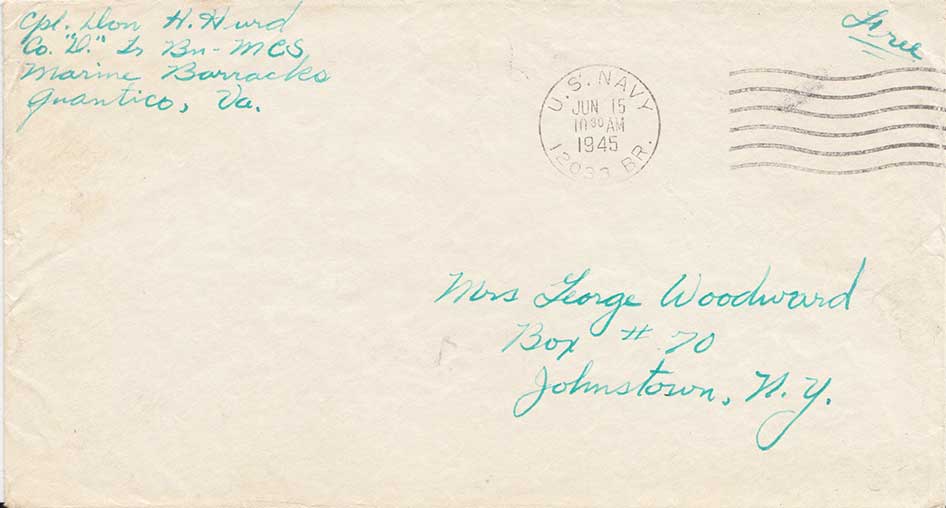 Cpl. Don H. Hurd
Co. "D." Tr Bn - MCS,
Marine Barracks
Quantico, Va.
Free
U.S. NAVY
JUN 15
10 30 AM
1945
12033 BR.
Mrs George Woodward
Box # 70
Johnstown, N.Y.